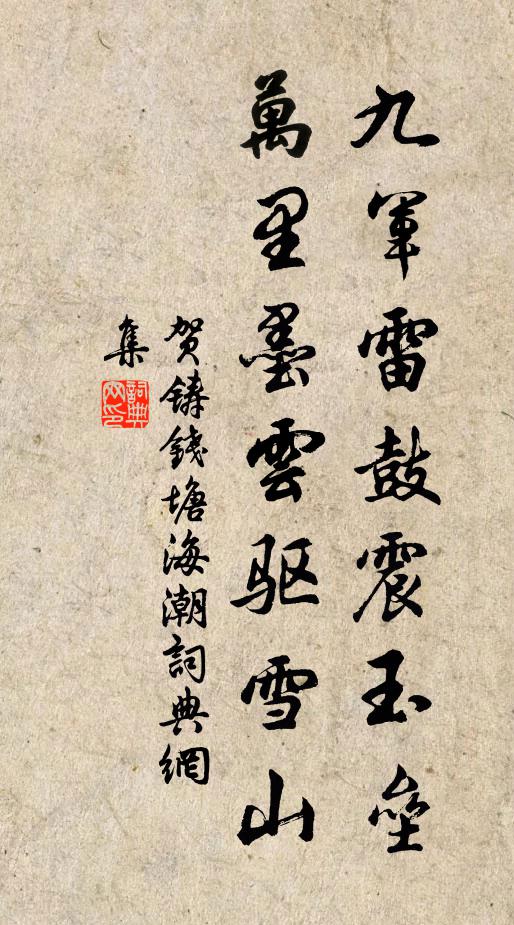 九軍雷鼓震玉壘
萬里墨雲驱雪山
贺鑄錢塘海潮詞典網
集
詞典網印